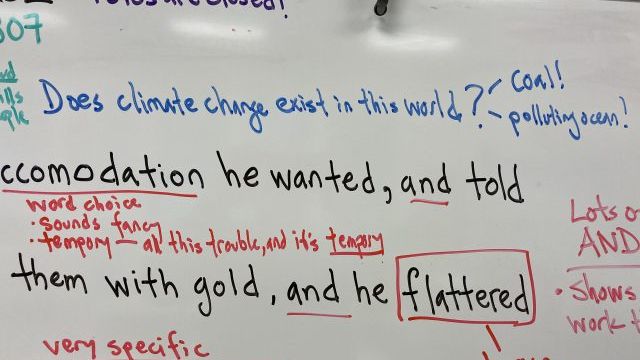 307
Does climate change exist in this world?
Coal!
polluting ocean!
ccomodation he wanted, and told
word choice
• sounds fancy
• tempory — all this trouble, and it's tempory
Lots
AND
them with gold, and he flattered
• Shows
work
very specific